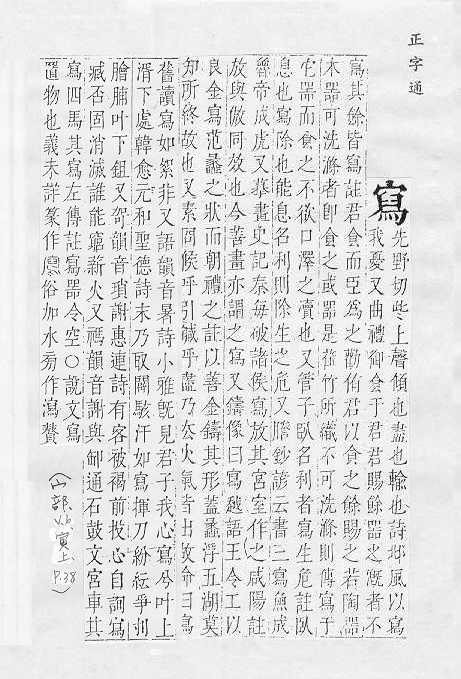 正字通
寫先野切些上聲傾也盡也輸也詩邶風以寫
我憂又曲禮御食于君君賜餘器之漑者不
寫其餘皆寫註君食而臣爲之勸侑君以食之餘賜之若陶器
木器可洗滌者卽食之或器是萑竹所織不可洗滌則傳寫于
它器而食之不欲口澤之瀆也又管子臥名利者寫生危註臥
息也寫除也能息名利則除生之危又鈔諺云書三寫魚成
魯帝成虎又摹畫史記秦每破諸侯寫放其宮室作之咸陽註
放與倣同效也今善畫亦謂之寫又鑄像曰寫越語王令工以
良金寫范蠡之狀而朝禮之註以善金鑄其形蓋蠡浮五湖莫
知所終故也又素問候乎引鍼乎盡乃火氣皆出故命曰寫
舊讀寫如絮非又語韻音暑詩小雅旣見君子我心寫兮叶上
湑下處韓愈元和聖德詩末乃取闢駭汗如寫揮刀紛紜爭刌
膾脯叶下鉏又哿韻音瑣謝惠連詩有客被褐前投心自詢寫
臧否固消滅誰能窮薪火又禡韻音謝與卸通石鼓文宮車其
寫四馬其寫左傳註寫器令空○說文寫
置物也義未詳篆作俗加水旁作瀉贅
(宀部 寅上 P.38)